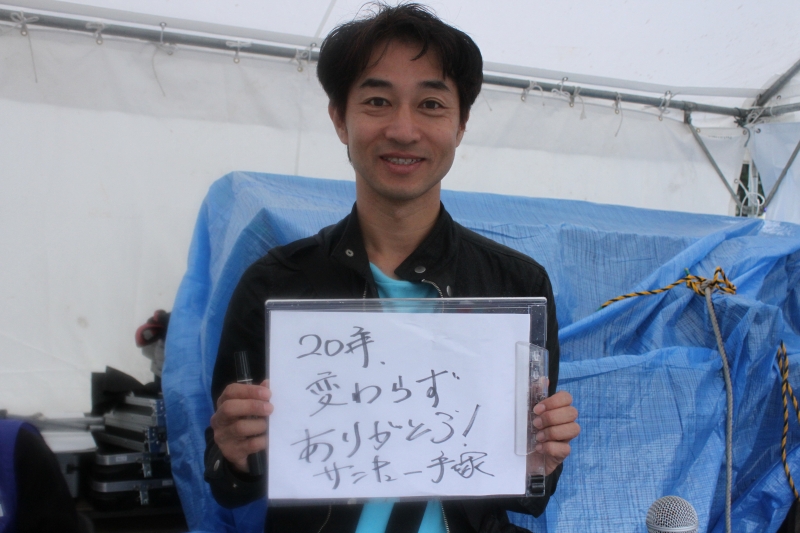 20年、
変わらず
ありがとう!
サンキュー手塚